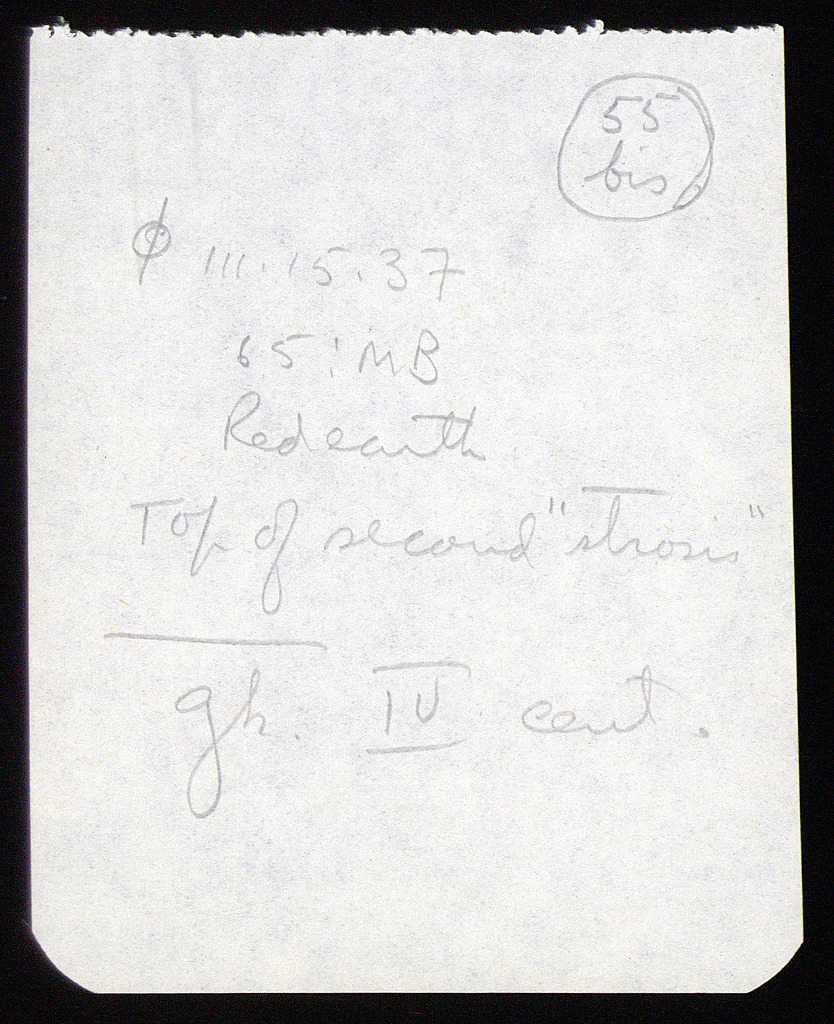 55
bis
Φ III.15.37
65:MB
Red earth
Top of second "strosis"
gk. IV cent.